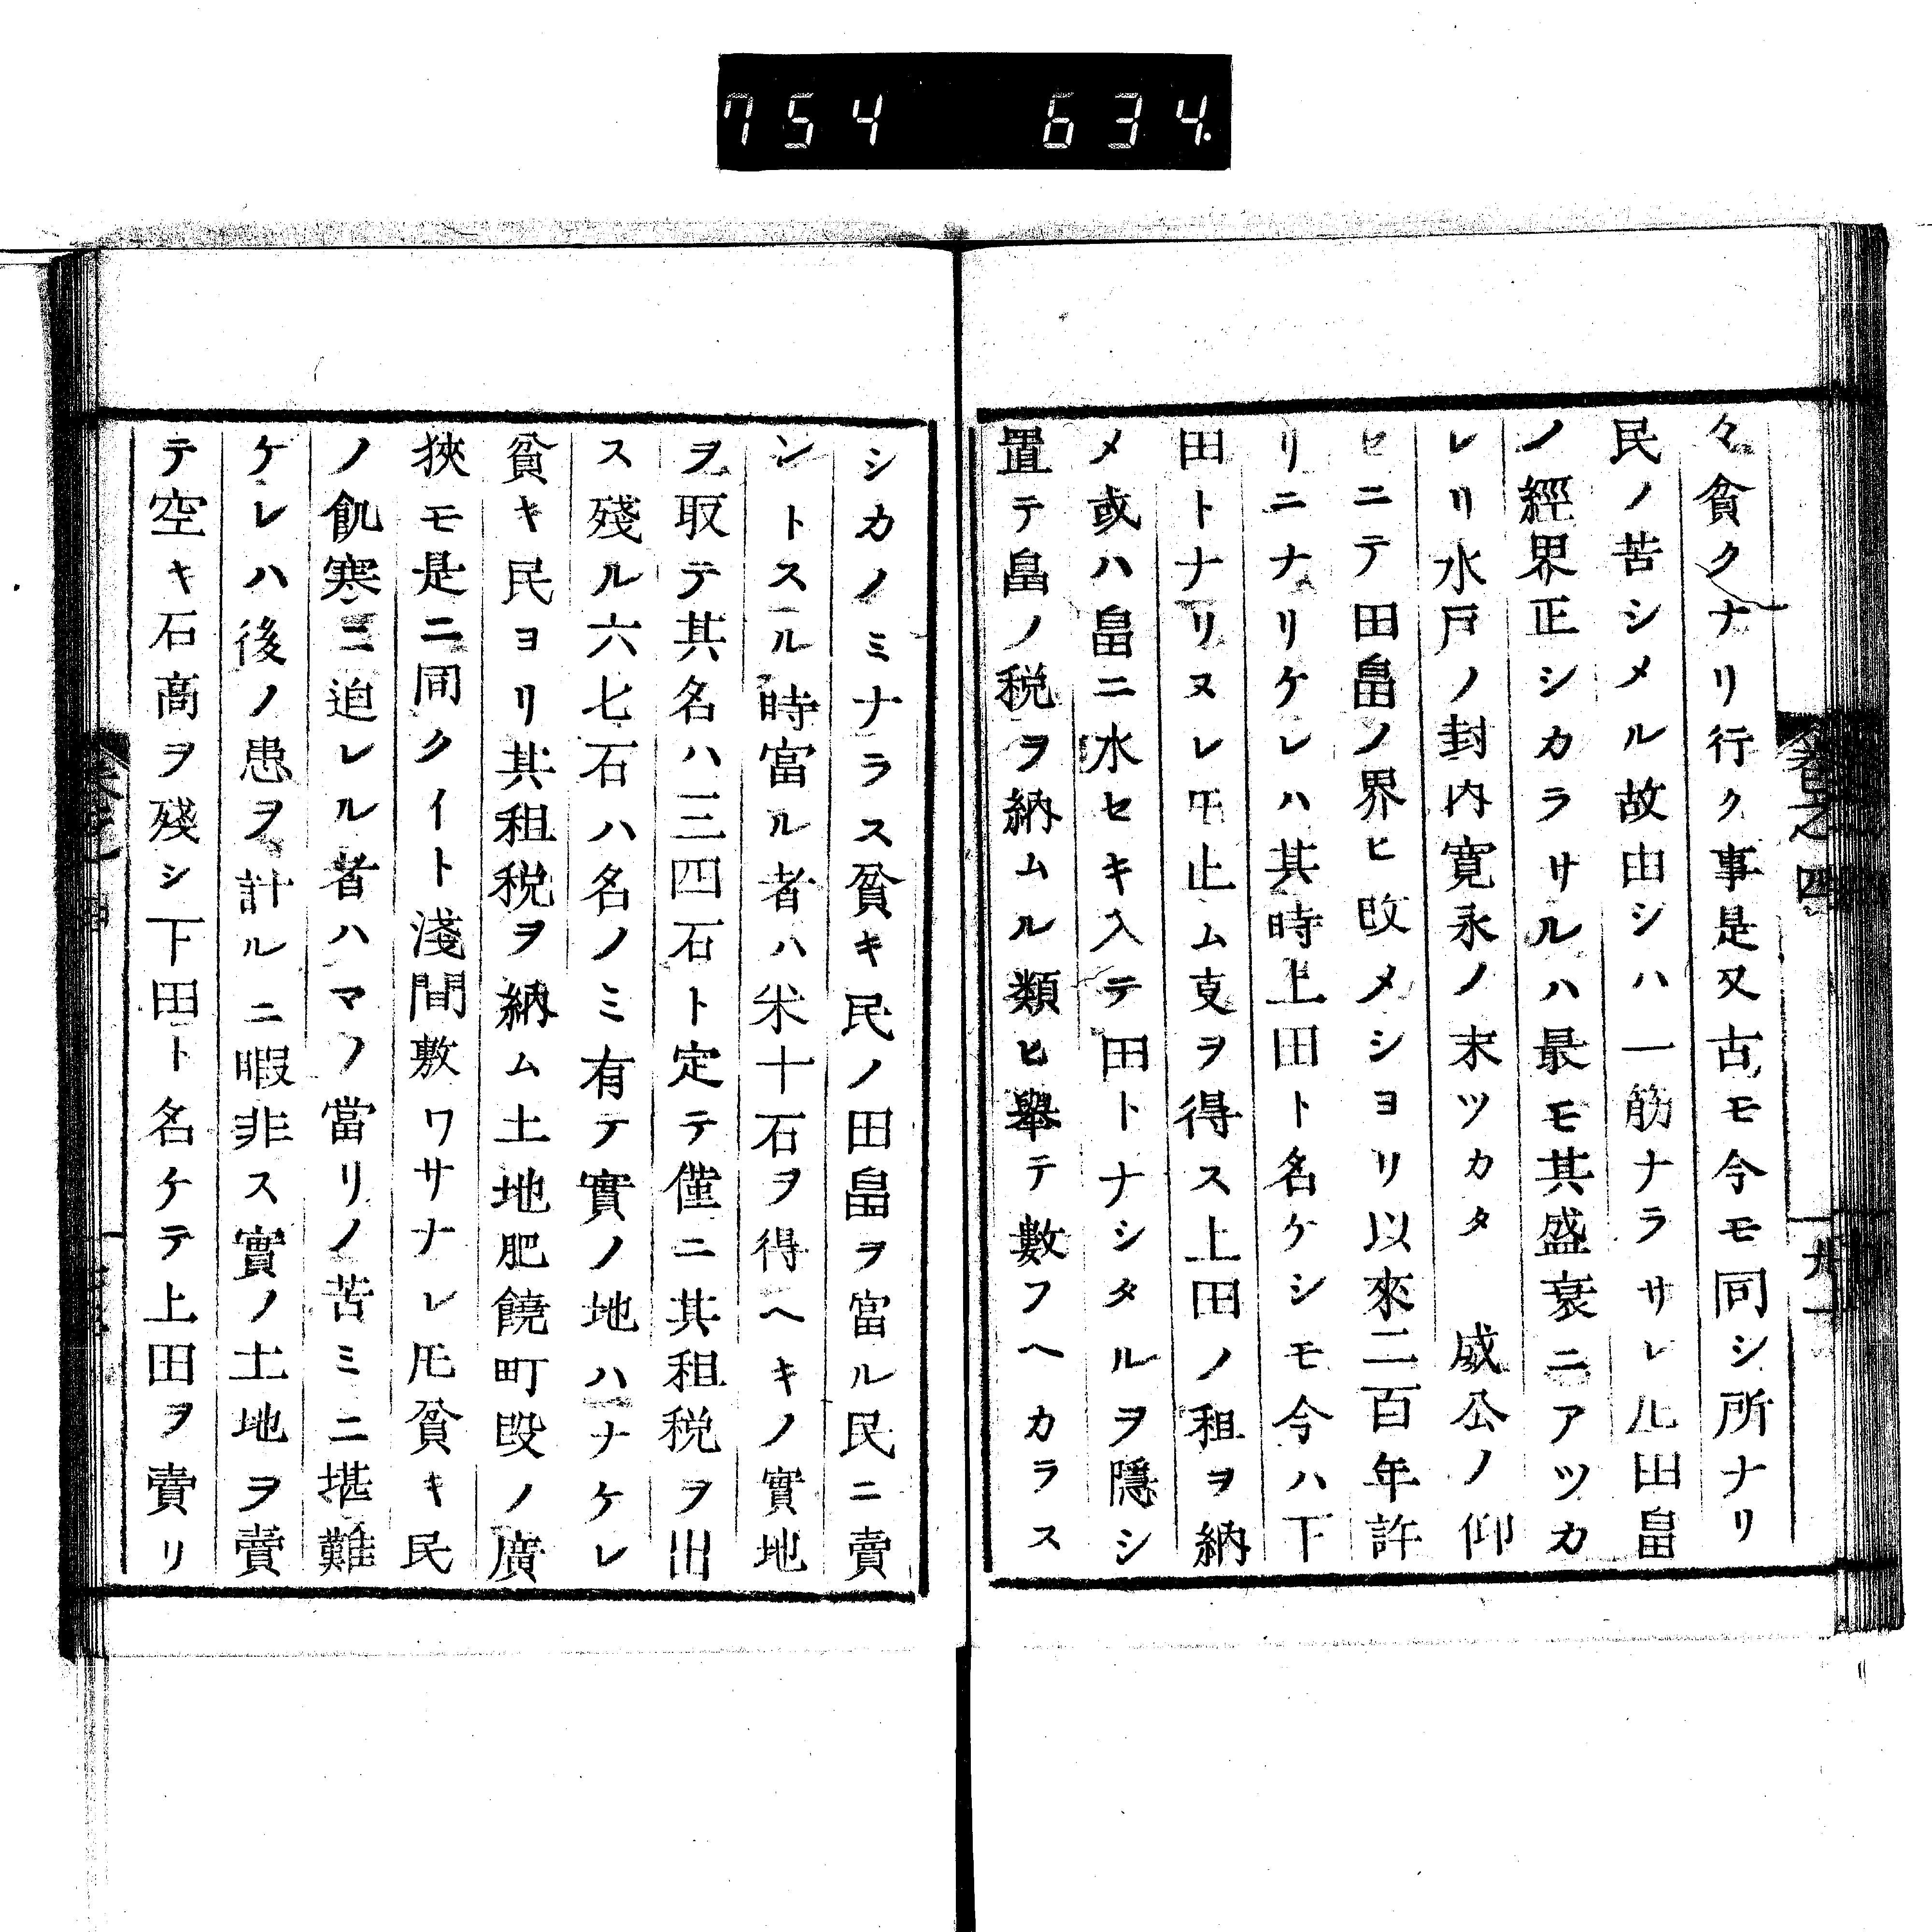 754 634.
々貧クナリ行ク事是又古モ今モ同シ所ナリ
民ノ苦シメル故由シハ一筋ナラサレ𪜈田畠
ノ經界正シカラサルハ最モ其盛衰ニアツカ
レリ水戸ノ封内寛永ノ末ツカタ　威公ノ仰
セニテ田畠ノ界ヒ改メシヨリ以來二百年許
リニナリケレハ其時上田ト名ケシモ今ハ下
田トナリヌレ𪜈止ム叓ヲ得ス上田ノ租ヲ納
メ或ハ畠ニ水セキ入テ田トナシタルヲ隱シ
置テ畠ノ税ヲ納ムル類ヒ擧テ數フヘカラス
シカノミナラス貧キ民ノ田畠ヲ富ル民ニ賣
ントスル時富ル者ハ米十石ヲ得ヘキノ實地
ヲ取テ其名ハ三四石ト定テ僅ニ其租税ヲ出
ス殘ル六七石ハ名ノミ有テ實ノ地ハナケレ
貧キ民ヨリ其租税ヲ納ム土地肥饒町段ノ廣
狹モ是ニ同クイト淺間敷ワサナレ𪜈貧キ民
ノ飢寒ニ迫レル者ハマノ當リノ苦ミニ堪難
ケレハ後ノ患ヲ計ルニ暇非ス實ノ土地ヲ賣
テ空キ石高ヲ殘シ下田ト名ケテ上田ヲ賣リ